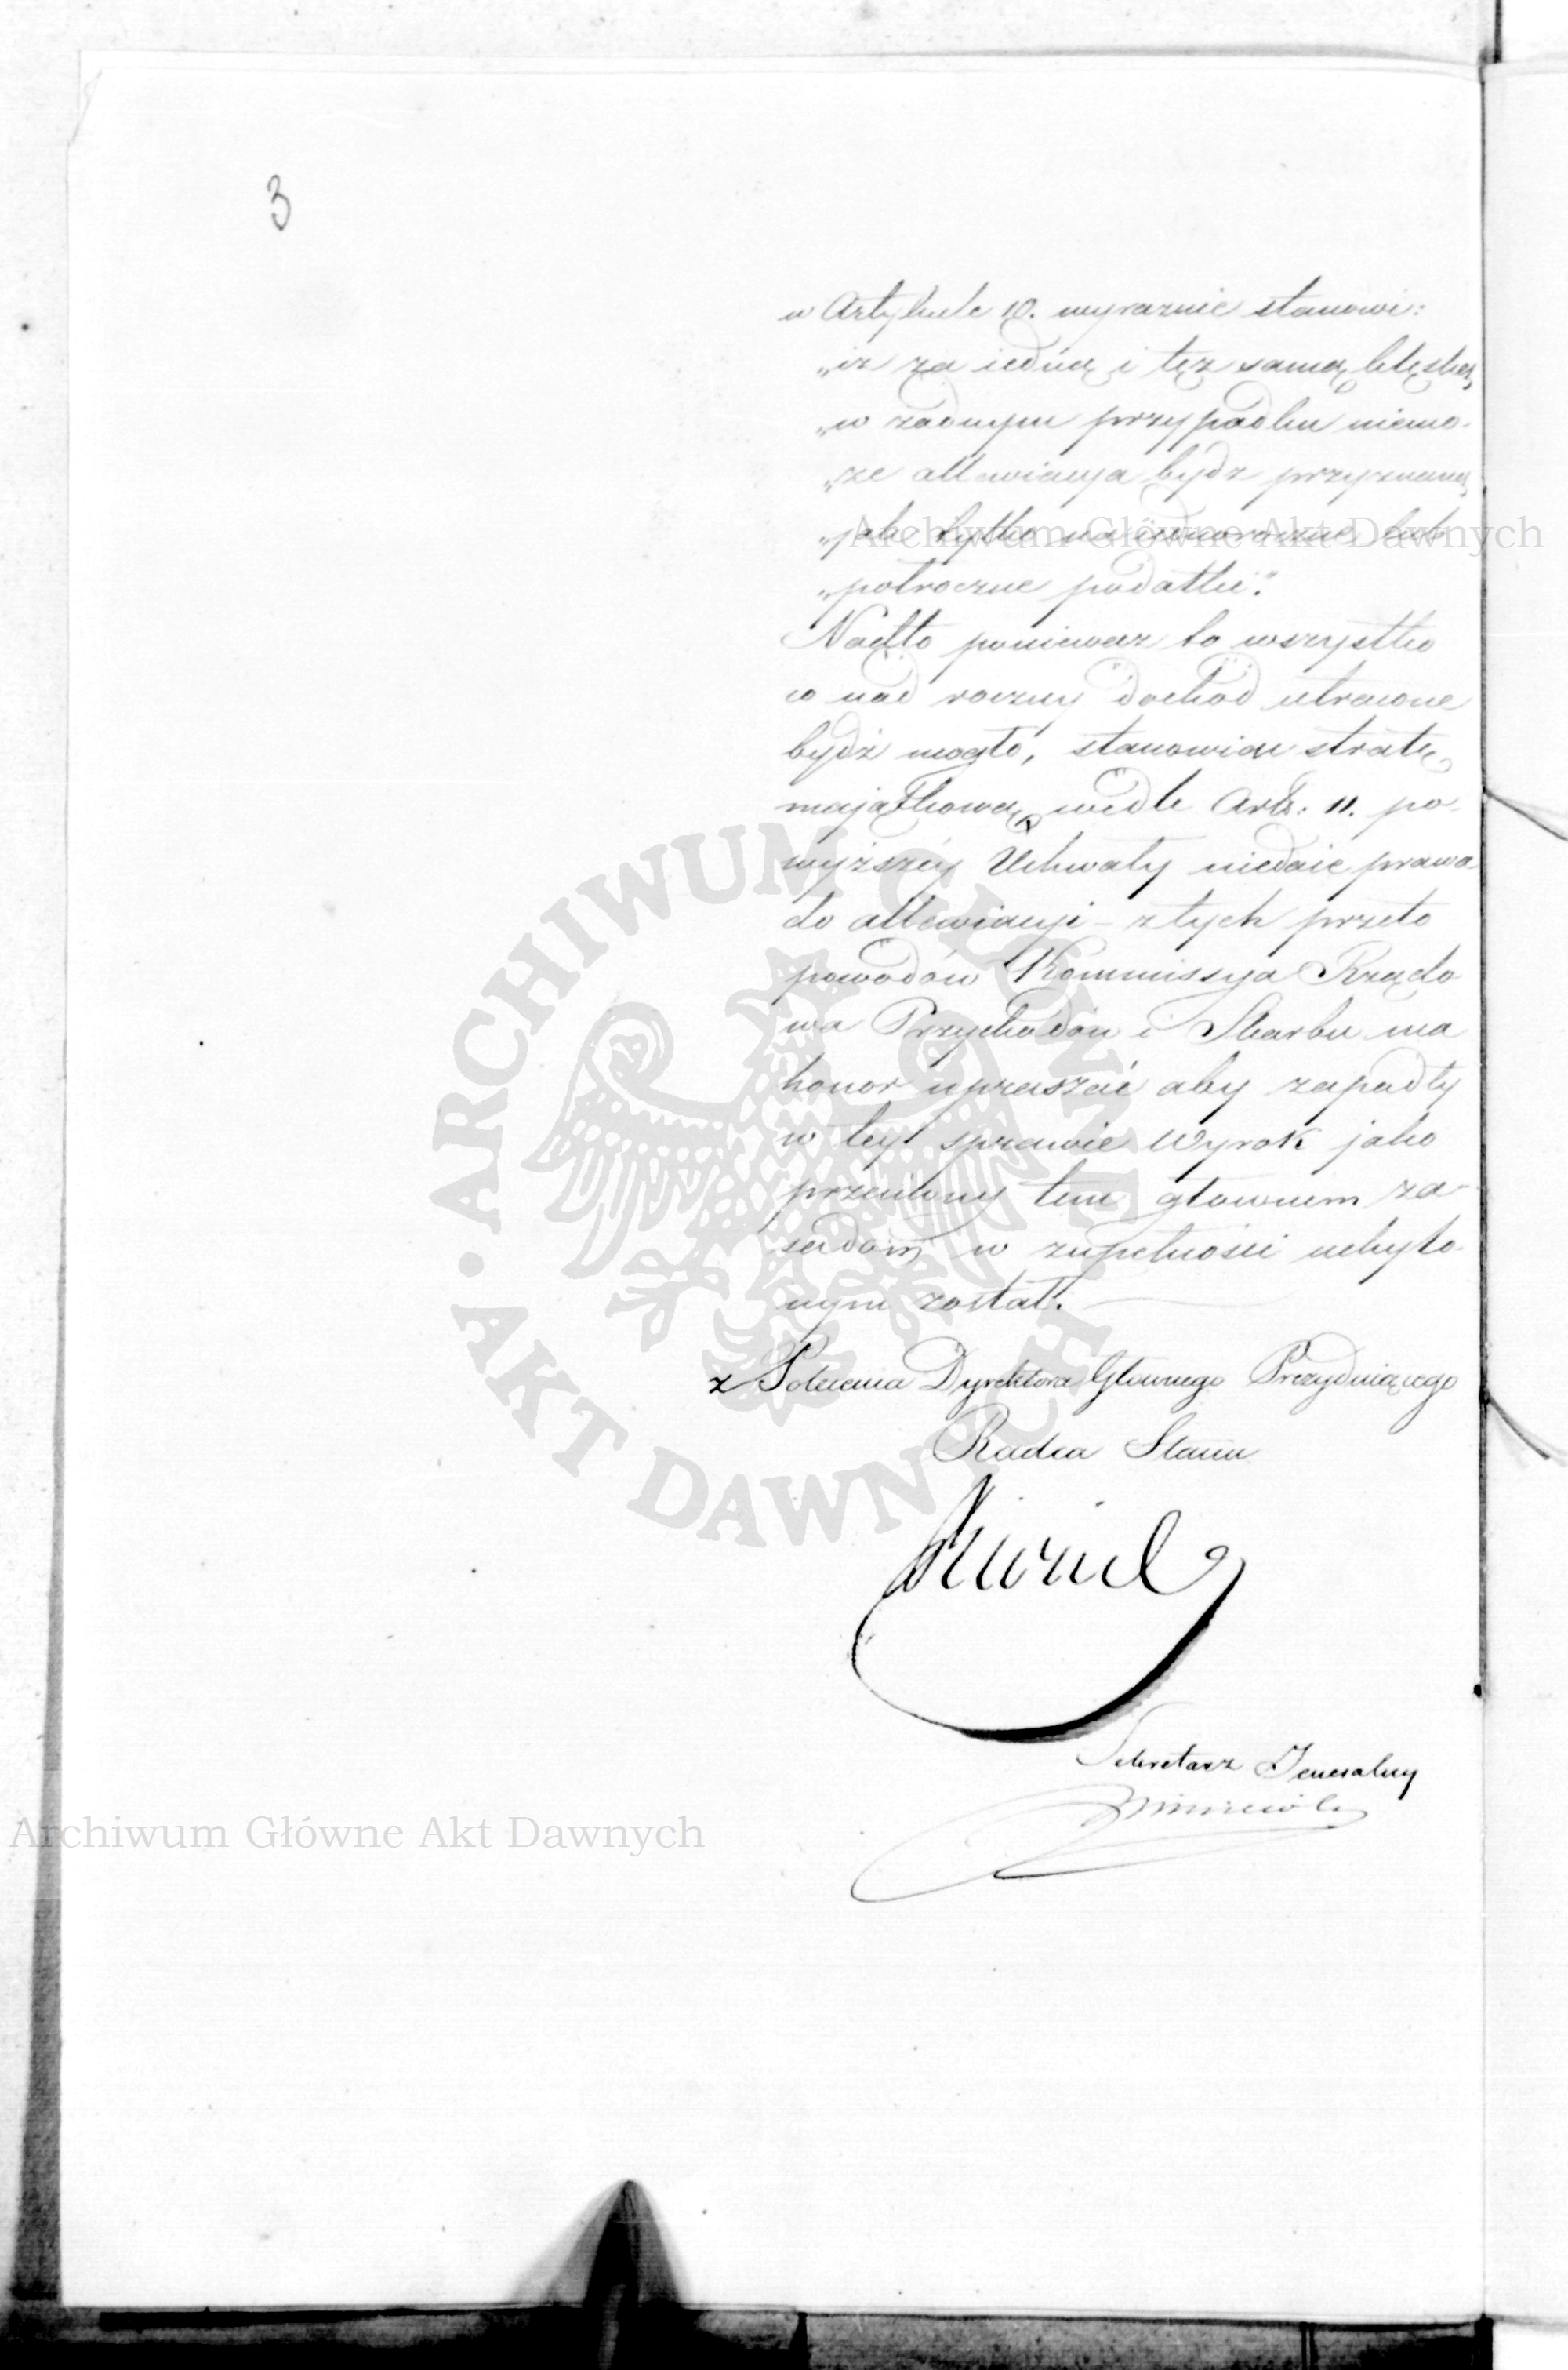 3
w Artykule 10. wyraznie stanowi:
„iz za iedną i tęz samą klęskę,
„w zadnym przypadku niemo-
„ze allewiacya bydz przyznaną,
„jak tylko na iednoroczne lub
„połroczne podatki."
Nadto poniewaz to wszystko
co nad roczny dochód utracone
bydź mogło, stanowiąc stratę
majątkową wedle Art: 11. po-
wyższéy Uchwały niedaie prawa
do allewiacyi – z tych przeto
powodów Kommissya Rządo
wa Przychodów i Skarbu ma
honor upraszać aby zapadły
w tey sprawie Wyrok jako
przeciwny tem głownem za-
sadom w zupełności uchylo-
nym został.
z Polecenia Dyrektora Głownego Prezyduiącego
Radca Stanu
Sekretarz Jeneralny
Archiwum Główne Akt Dawnych
ARCHIWUM GŁÓWNE • AKT DAWNYCH
Archiwum Główne Akt Dawnych